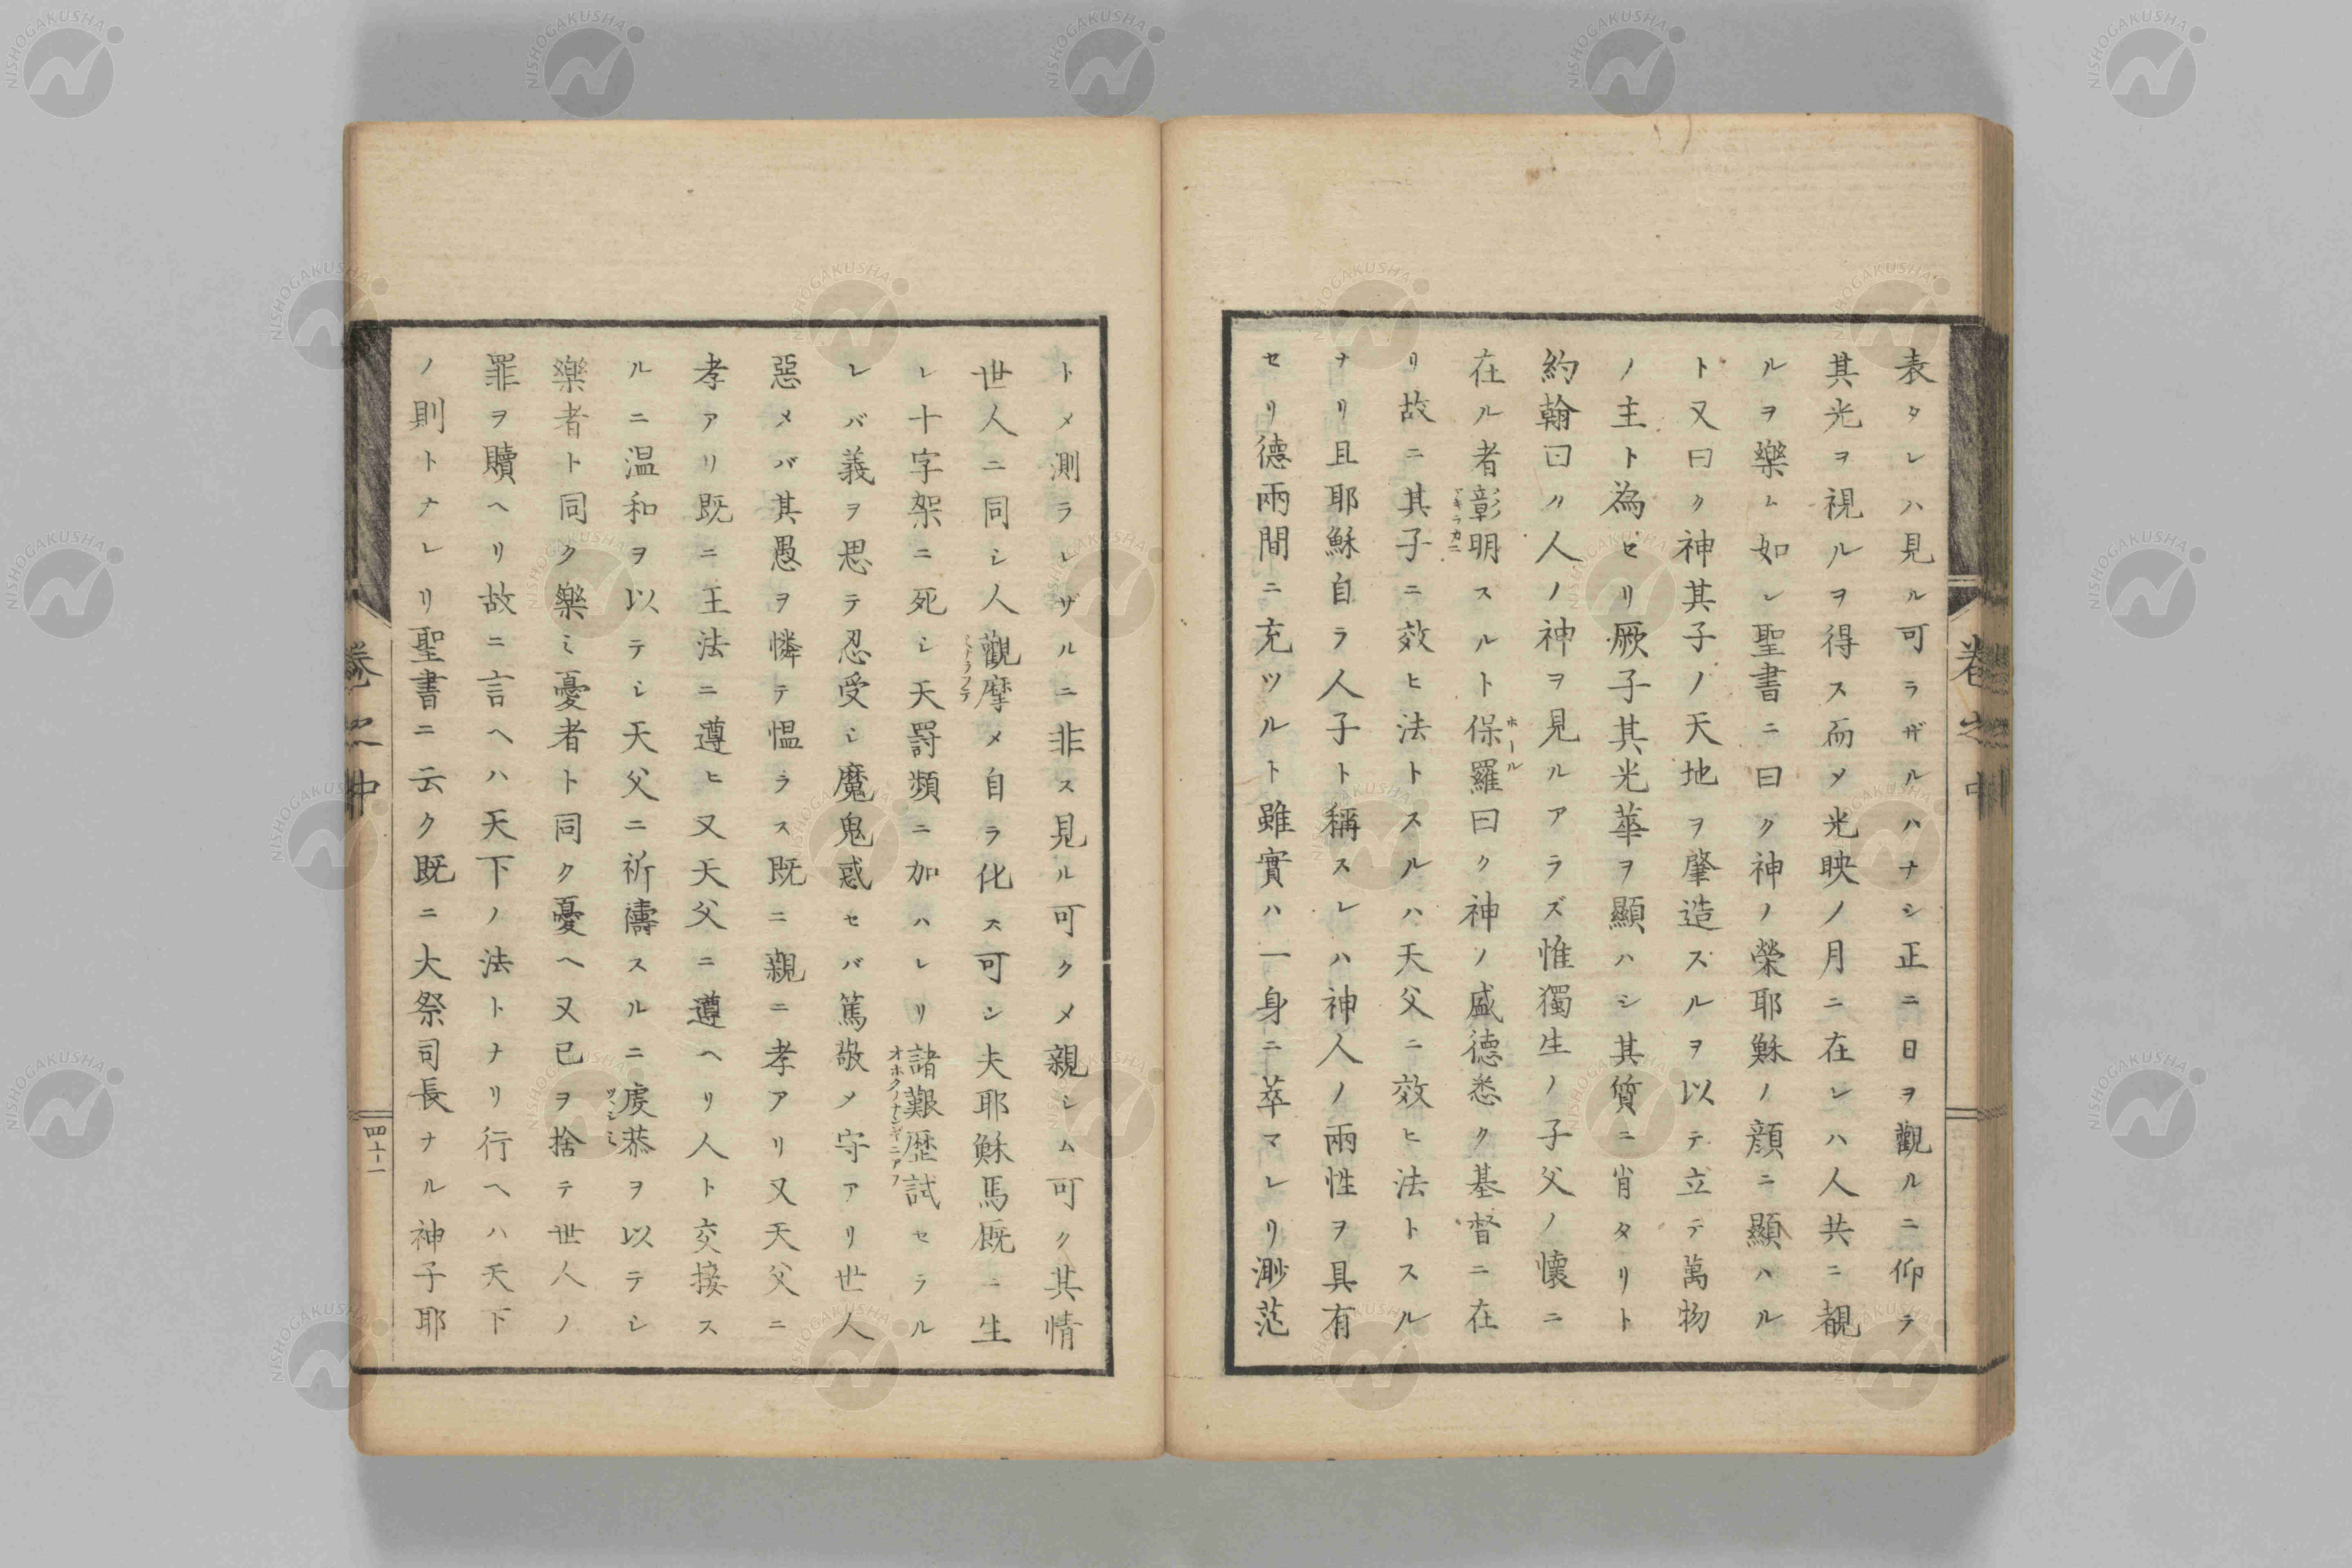 表タレハ見ル可ラザルハナシ正ニ日ヲ觀ルニ仰テ
其光ヲ視ルヲ得ス而メ光映ノ月ニ在レハ人共ニ覩
ルヲ樂ム如シ聖書ニ曰ク神ノ榮耶穌ノ顔ニ顯ハル
ト又曰ク神其子ノ天地ヲ肇造スルヲ以テ立テ萬物
ノ主ト為セリ厥子其光華ヲ顯ハシ其質ニ肖タリト
約翰曰ク人ノ神ヲ見ルアラズ惟獨生ノ子父ノ懷ニ
在ル者彰明スルト保羅曰ク神ノ盛德悉ク基督ニ在
アキラカニ
ホール
リ故ニ其子ニ效ヒ法トスルハ天父ニ效ヒ法トスル
ナリ且耶穌自ラ人子ト稱スレハ神人ノ兩性ヲ具有
セリ德兩間ニ充ツルト雖實ハ一身ニ萃マレリ渺茫
卷之中
トメ測ラレザルニ非ス見ル可クメ親シム可ク其情
世人ニ同シ人觀摩メ自ラ化ス可シ夫耶穌馬厩ニ生
ミナラフテ
レ十字架ニ死シ天罸頻ニ加ハレリ諸艱歷試セラル
オホクノナンギニアフ
レバ義ヲ思テ忍受シ魔鬼惑セバ篤敬メ守アリ世人
惡メバ其愚ヲ憐テ慍ラス既ニ親ニ孝アリ又天父ニ
孝アリ既ニ王法ニ遵ヒ又天父ニ遵ヘリ人ト交接ス
ルニ温和ヲ以テシ天父ニ祈禱スルニ虔恭ヲ以テシ
ツヽシミ
樂者ト同ク樂ミ憂者ト同ク憂ヘ又已ヲ捨テ世人ノ
罪ヲ贖ヘリ故ニ言ヘハ天下ノ法トナリ行ヘハ天下
ノ則トナレリ聖書ニ云ク既ニ大祭司長ナル神子耶
卷之中
四十一
NISHOGAKUSHA